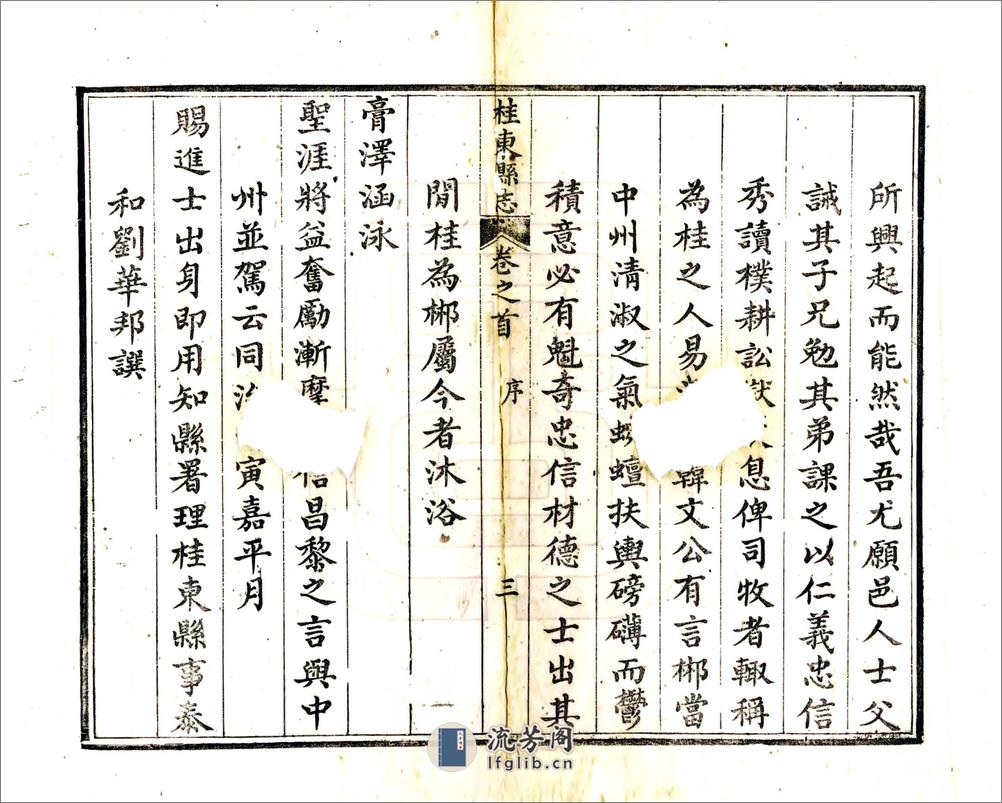 所興起而能然哉吾尤願邑人士父
誡其子兄勉其弟課之以仁義忠信
秀讀樸耕訟息俾司牧者輙稱
為桂之人易韓文公有言郴當
中州清淑之氣蜿蟺扶輿磅礴而鬱
積意必有魁奇忠信材德之士出其
桂東縣志
卷之首
序
三
間桂為郴屬今者沐浴
膏澤涵泳
聖涯將益奮勵漸摩信昌黎之言與中
州並駕云同治寅嘉平月
賜進士出身即用知縣署理桂東縣事泰
和劉華邦譔
流芳阁
lfglib.cn